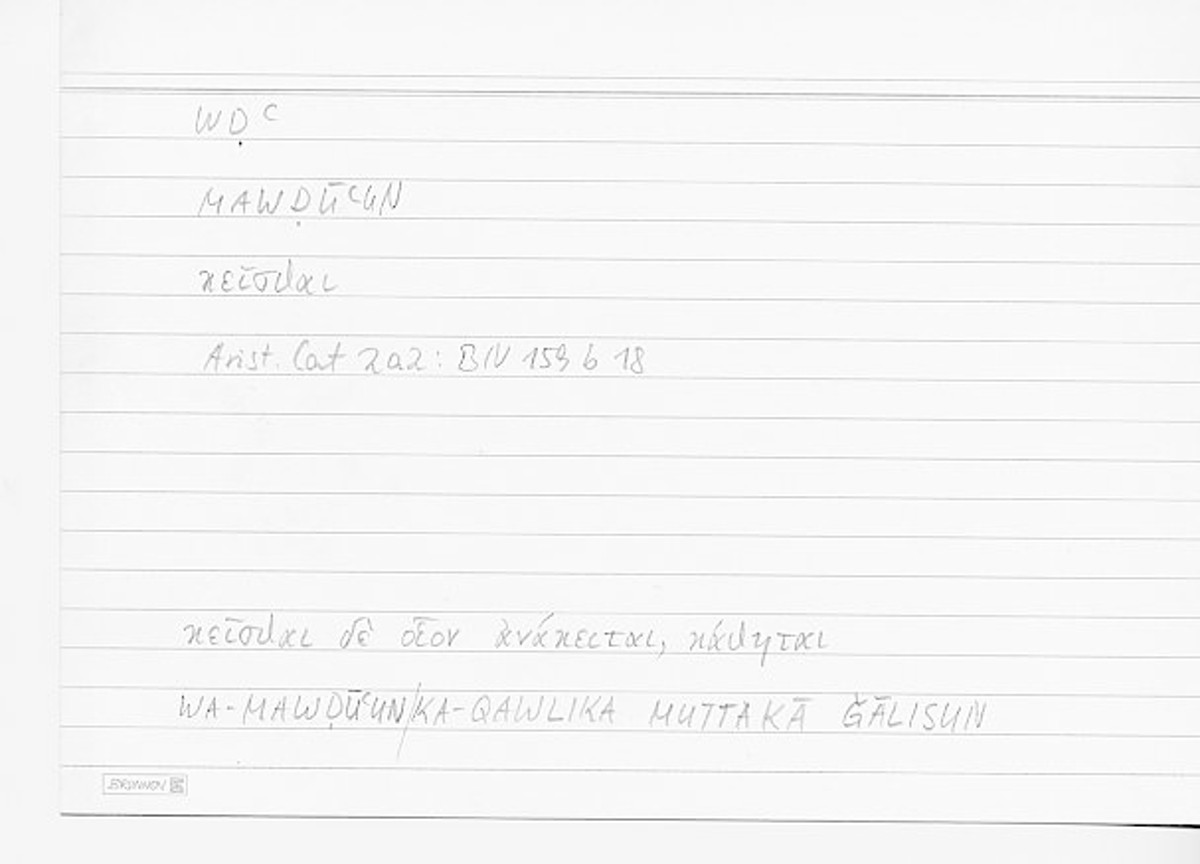 WḌʿ
MAWḌŪʿUN
κεῖσθαι
Arist. Cat 2a2: BIV 159 b 18
κεῖσθαι δὲ οἷον ἀνάκειται, κάθηται
WA-MAWḌŪʿUN/KA-QAWLIKA MUTTAKĀ ǦĀLISUN
BRUNNEN